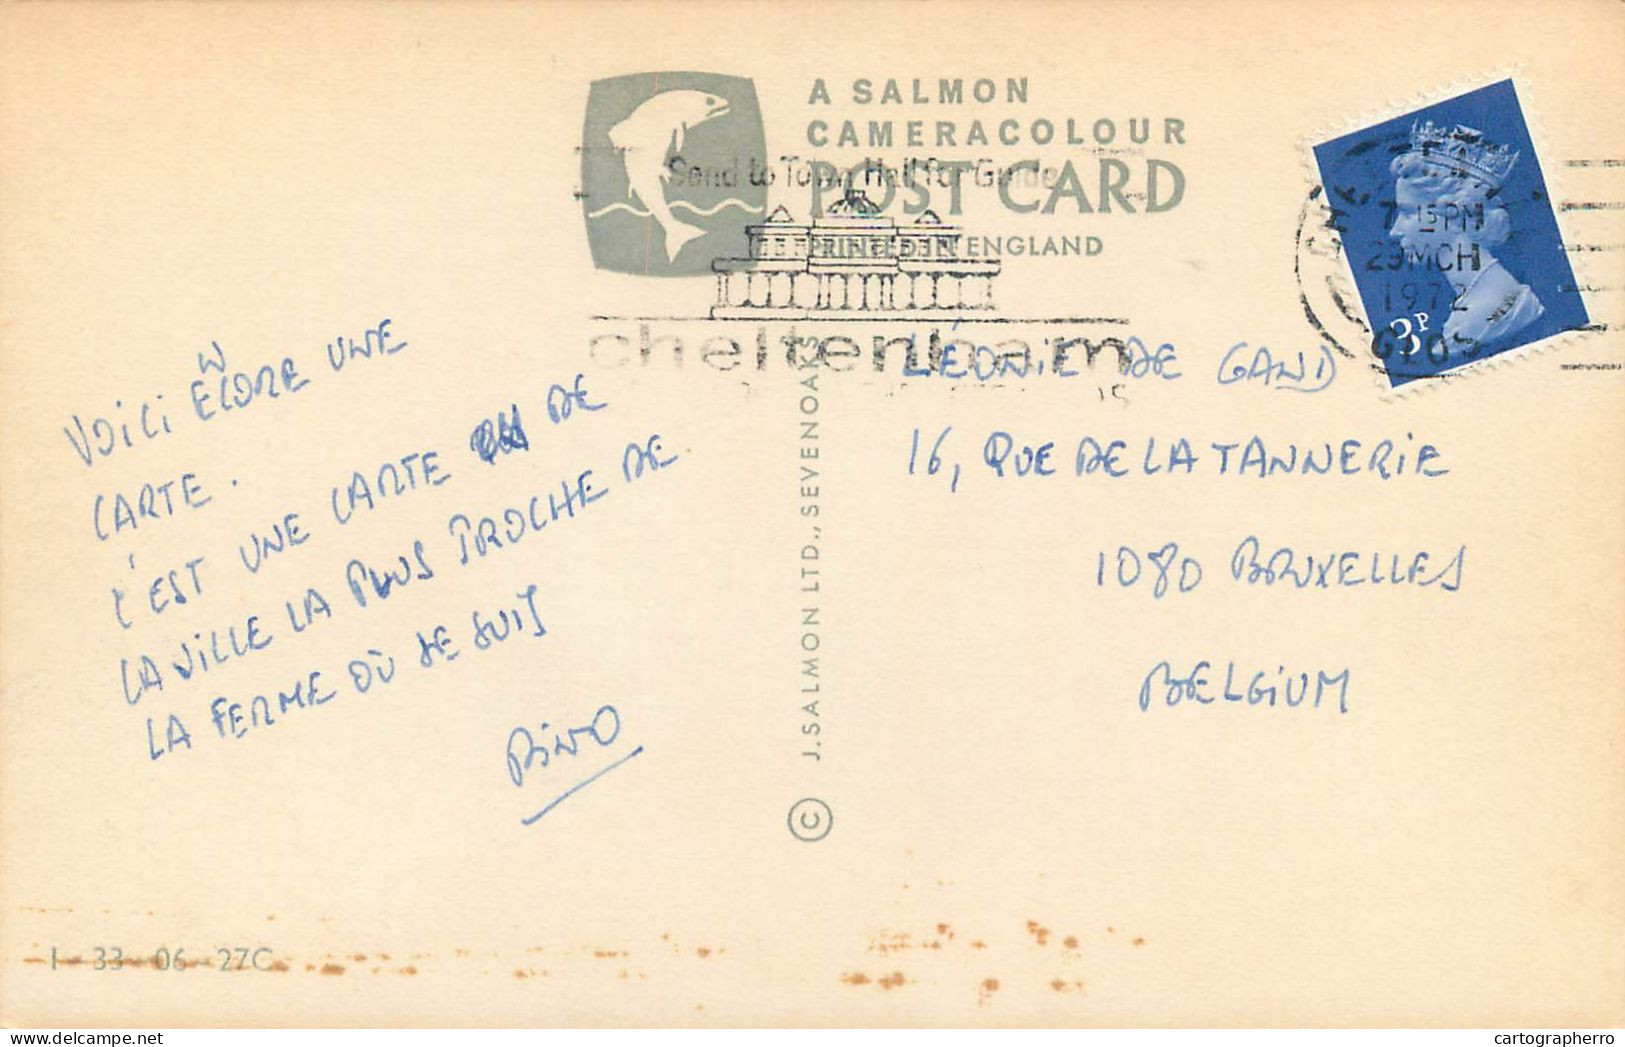 A SALMON
CAMERACOLOUR
POST CARD
PRINTED IN ENGLAND
Send to Town Hall for Guide
cheltenham
7 15 PM
29 MCH
1972
GLOS
3P
VOICI ENCORE UNE
CARTE.
C'EST UNE CARTE DE
LA VILLE LA PLUS PROCHE DE
LA FERME OÙ JE SUIS
RINO
LÉONIE DE GAND
16, RUE DE LA TANNERIE
1080 BRUXELLES
BELGIUM
© J. SALMON LTD., SEVENOAKS
1-33-06-27C
cartographerro